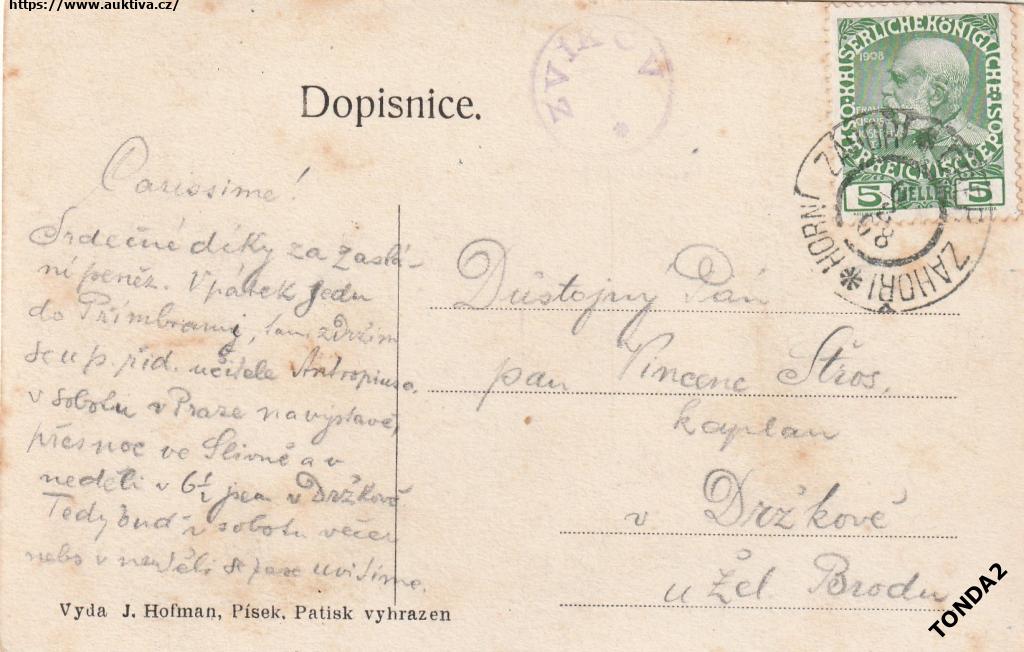 https://www.auktiva.cz/
Dopisnice.
ZVÍKOV
1908
5 HELLER 5
ZÁHOŘÍ * HORNÍ ZÁHOŘÍ
Carissime!
Srdečné díky za zaslá-
ní peněz. V pátek jedu
do Přímbrami, tam zdržím
se u p. říd. učitele Antropiusa,
v sobotu v Praze na výstavě,
přes noc ve Slivně a v
neděli v 6½ jsem v Držkově
Tedy buď v sobotu večer
nebo v neděli se zase uvidíme.
Důstojný Pán
pan Vincenc Štros,
kaplan
v Držkově
u Žel. Brodu
Vyda J. Hofman, Písek. Patisk vyhrazen
TONDA2